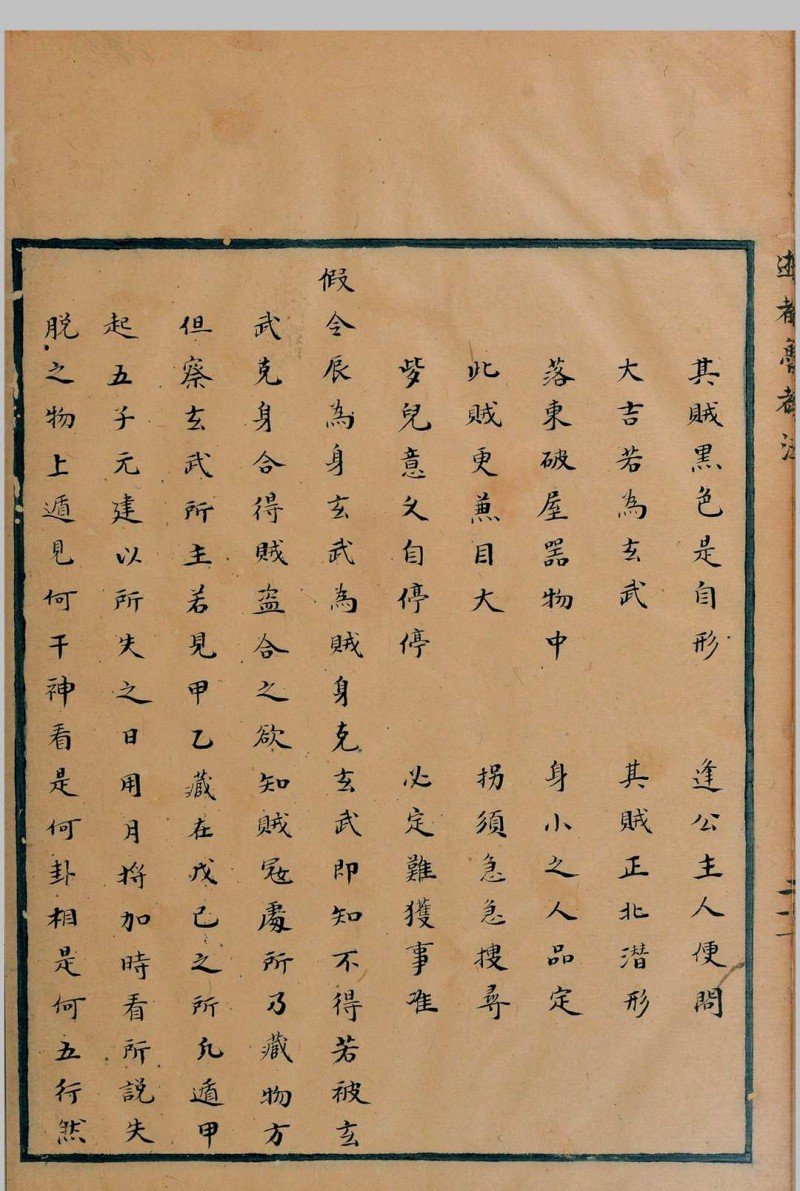 其賊黑色是自形　逢公主人便問
大吉若為玄武　其賊正北潛形
落東破屋器物中　身小之人品定
此賊更蒹目大　拐須急急搜尋
㱔兒意文自停停　必定難獲事准
假令辰為身玄武為賊身克玄武即知不得若被玄
武克身合得賊盗合之欲知賊冦處所乃藏物方
但察玄武所主若見甲乙藏在戊己之所凢遁甲
起五子元建以所失之日用月將加時看所說失
脫之物上遁見何干神看是何卦相是何五行然
都
二十